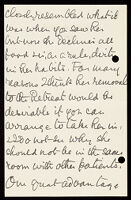 closely resembled what it
was when you saw her
but now she declines all
food and is a rude, dirty
in her habits. For many
reasons I think her removal
to the Retreat would be
desirable if you can
arrange to take her in,
I do not see why she
should not be in the same
room with other patients.
One great advantage